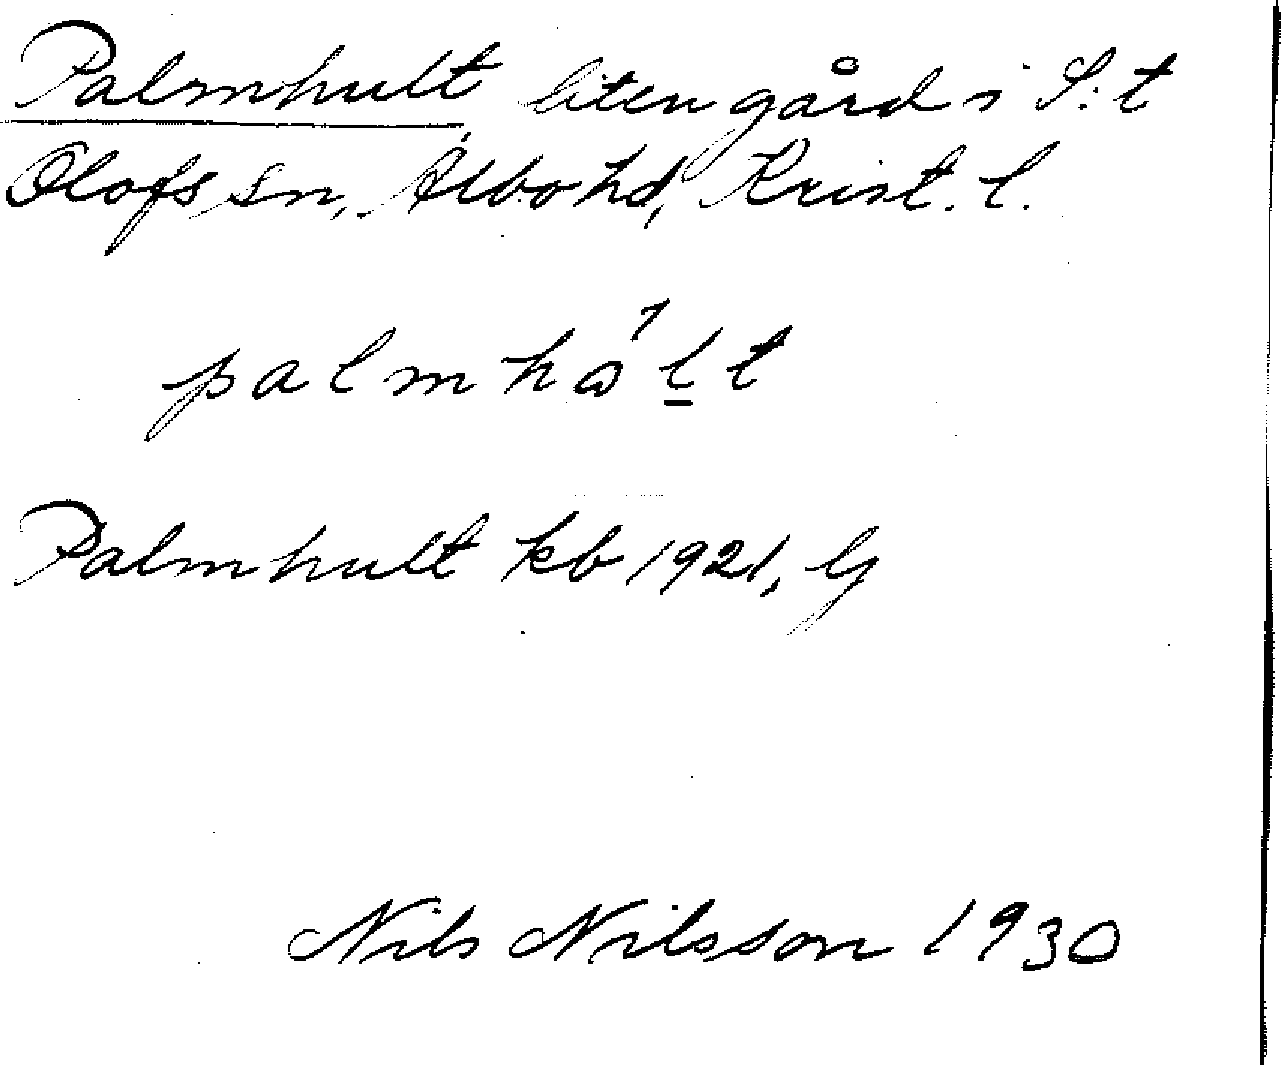 Palmhult, liten gård i S:t
Olofs sn, Albo hd, Krist. l.
palmhω´l̲t
Palmhult kb 1921, Lj
Nils Nilsson 1930